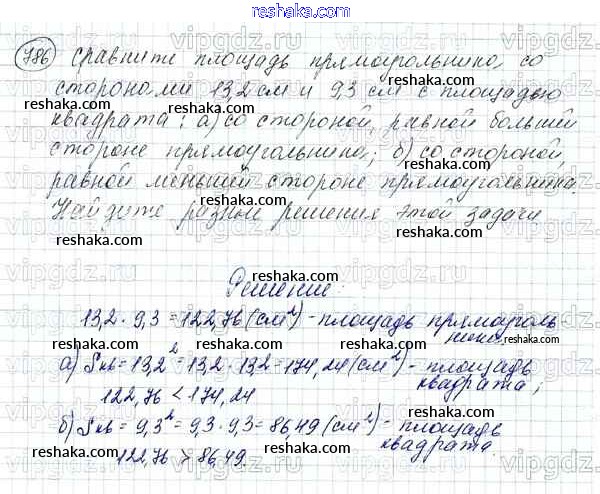 reshaka.com
786 Сравните площадь прямоугольника со
сторонами 13,2 см и 9,3 см с площадью
квадрата: а) со стороной, равной большей
стороне прямоугольника; б) со стороной,
равной меньшей стороне прямоугольника.
Найдите разные решения этой задачи
Решение:
13,2 · 9,3 = 122,76 (см²) - площадь прямоуголь
ника.
а) Sкв = 13,2² = 13,2 · 13,2 = 174,24 (см²) - площадь
квадрата;
122,76 < 174,24
б) Sкв = 9,3² = 9,3 · 9,3 = 86,49 (см²) - площадь
квадрата.
122,76 > 86,49.
reshaka.com